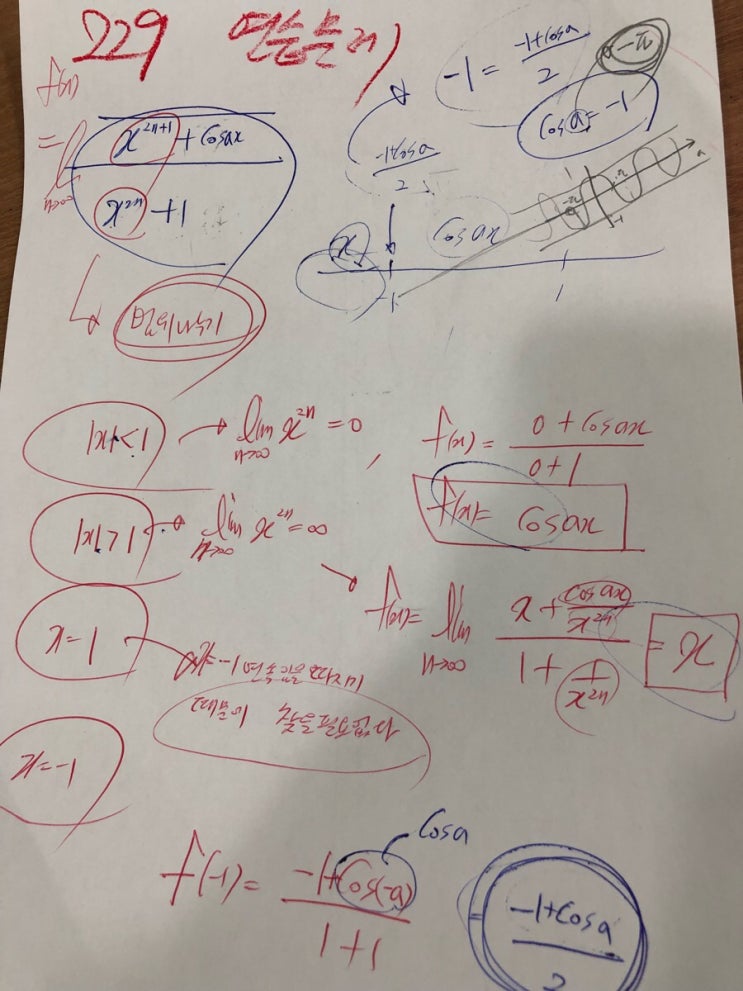 229 연습문제
f(x)
= lim n→∞ (x^{2n+1} + cosax) / (x^{2n} + 1)
↳ 범위나누기
-1 = (-1+cosa)/2
cosa = -1
-π
(-1+cosa)/2
x cosax
-1 1
|x|<1 → lim n→∞ x^{2n} = 0 , f(x) = (0 + cosax)/(0+1)
f(x) = cosax
|x|>1 → lim n→∞ x^{2n} = ∞
→ f(x) = lim n→∞ (x + cosax/x^{2n}) / (1 + 1/x^{2n}) = x
x=1 → x=-1 연속값을 따지기
때문에 찾을필요없다
x=-1
f(-1) = (-1+cos(-a))/(1+1) = (-1+cosa)/2
cosa